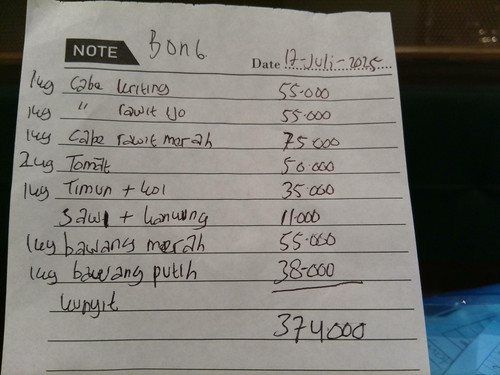 NOTE BONG
Date 17-Juli-2025
1kg Cabe kriting 55.000
1kg " rawit ijo 55.000
1kg Cabe rawit merah 75.000
2kg Tomat 50.000
1kg Timun + kol 35.000
Sawi + kanwng 11.000
1kg bawang merah 55.000
1kg bawang putih 38.000
kunyit
374000